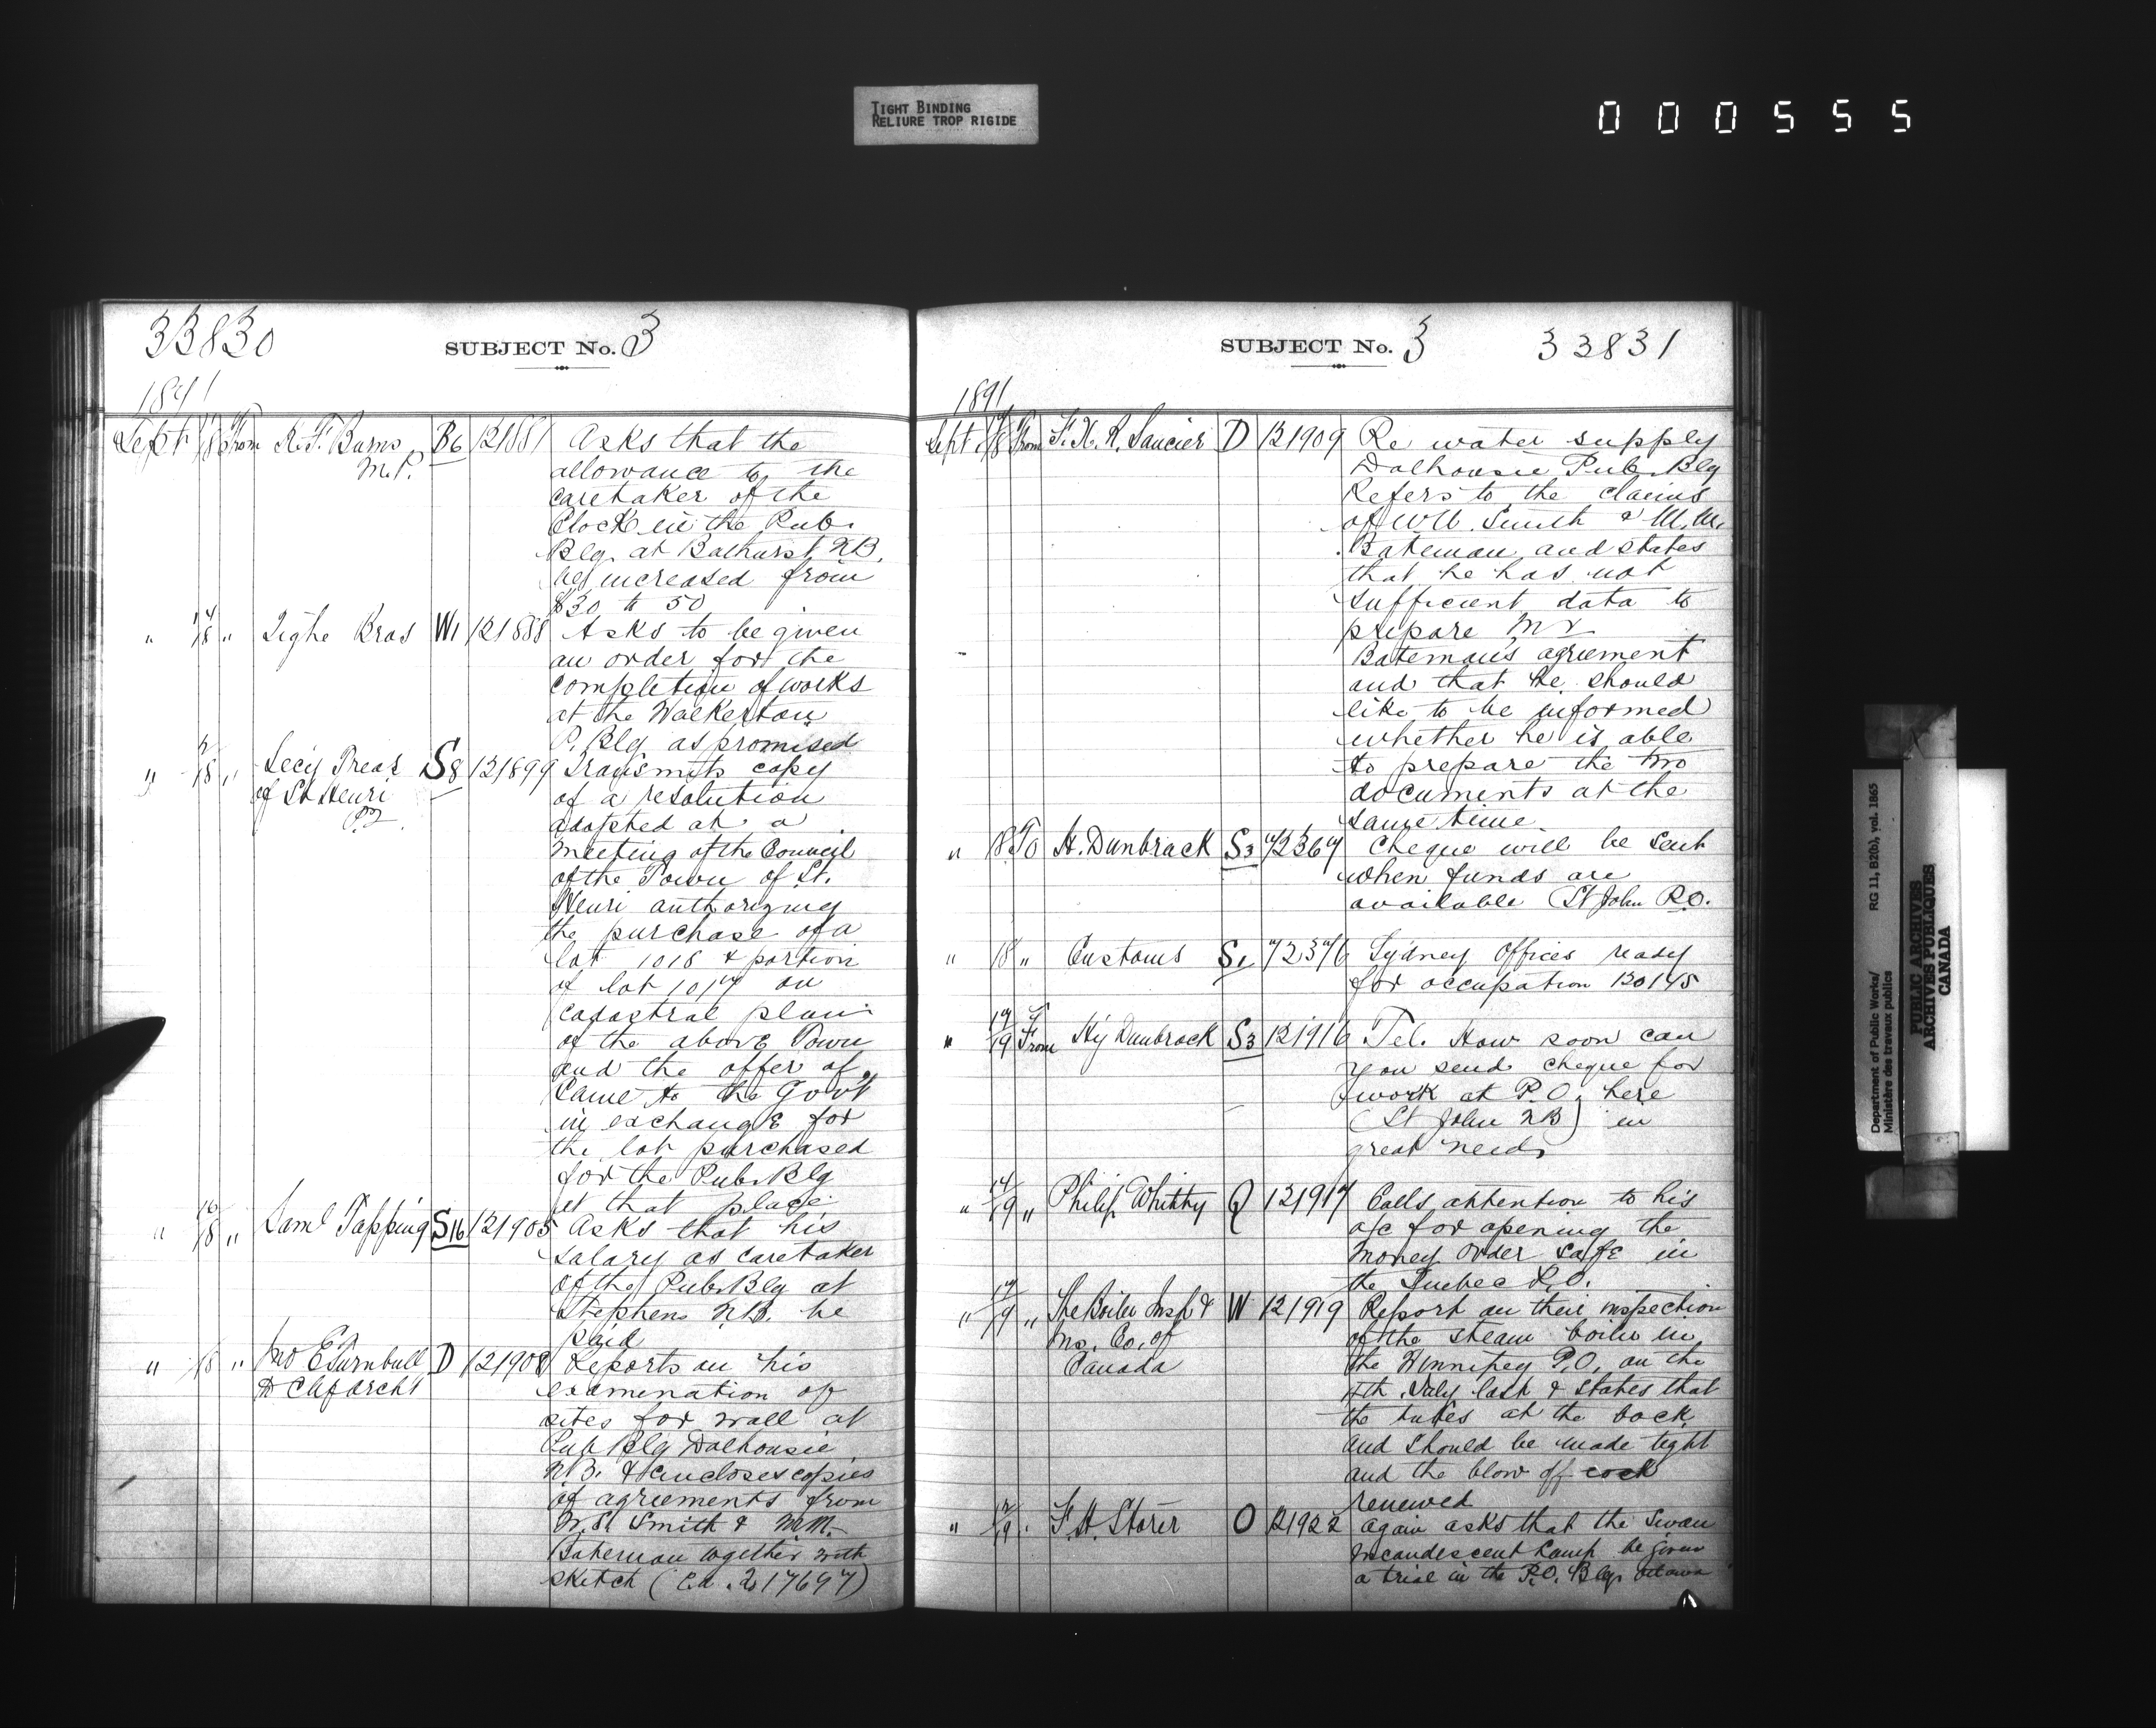 TIGHT BINDING
RELIURE TROP RIGIDE
000555
33830
SUBJECT No. 3
1891
Sept 17/18 From K. F. Burns B6 121881 Asks that the
M.P. allowance to the
caretaker of the
Clock in the Pub.
Blg. at Bathurst N.B.
be increased from
$30 to 50
" 14/18 " Tighe Bros W1 121888 Asks to be given
an order for the
completion of works
at the Walkerton
P. Blg. as promised
" /18 " Secy Treas S8 121899 Transmits copy
of St Henri of a resolution
P.Q. adopted at a
meeting of the Council
of the Town of St.
Henri authorizing
the purchase of a
lot 1018 & portion
of lot 1017 on
cadastral plan
of the above Town
and the offer of
same to the Govt
in exchange for
the lot purchased
for the Pub. Blg
at that place
" 16/18 " Saml Tapping S16 121905 Asks that his
salary as caretaker
of the Pub. Blg at
Stephens N.B. be
paid
" /18 " Jno E Turnbull D 121908 Reports on his
examination of
sites for wall at
Pub Blg Dalhousie
N.B. & encloses copies
of agreements from
Smith & M.M.
Bateman together with
sketch ( 217697)
SUBJECT No. 3
33831
1891
Sept /18 From F. X. R. Saucier D 121909 Re water supply
Dalhousie Pub. Blg
Refers to the claims
of Smith & M. M.
Bateman and states
that he has not
sufficient data to
prepare Mr
Bateman's agreement
and that he should
like to be informed
whether he is able
to prepare the two
documents at the
same time.
" 18 To H. Dunbrack S3 72367 Cheque will be sent
when funds are
available (St John P.O.
" 18 " Customs S1 72376 Sydney Offices ready
for occupation 120145
" 19/19 From Hy Dunbrack S3 121916 Tel. How soon can
you send cheque for
work at P.O. here
(St John NB) in
great need.
" 14/19 " Philip Whitty Q 121917 Calls attention to his
a/c for opening the
money order safe in
the Quebec P.O.
" 17/19 " The Boiler Insp & W 121919 Report on their inspection
Ins. Co. of of the steam boiler in
Canada the Winnipeg P.O. on the
4th July last & states that
the tubes at the back
and should be made tight
and the blow off cock
renewed
" /19 " F. H. Storer O 121922 Again asks that the Swan
Incandescent Lamp be given
a trial in the P.O. Blg. Ottawa
Department of Public Works/
Ministère des travaux publics
RG 11, B2(b), vol. 1865
PUBLIC ARCHIVES
ARCHIVES PUBLIQUES
CANADA